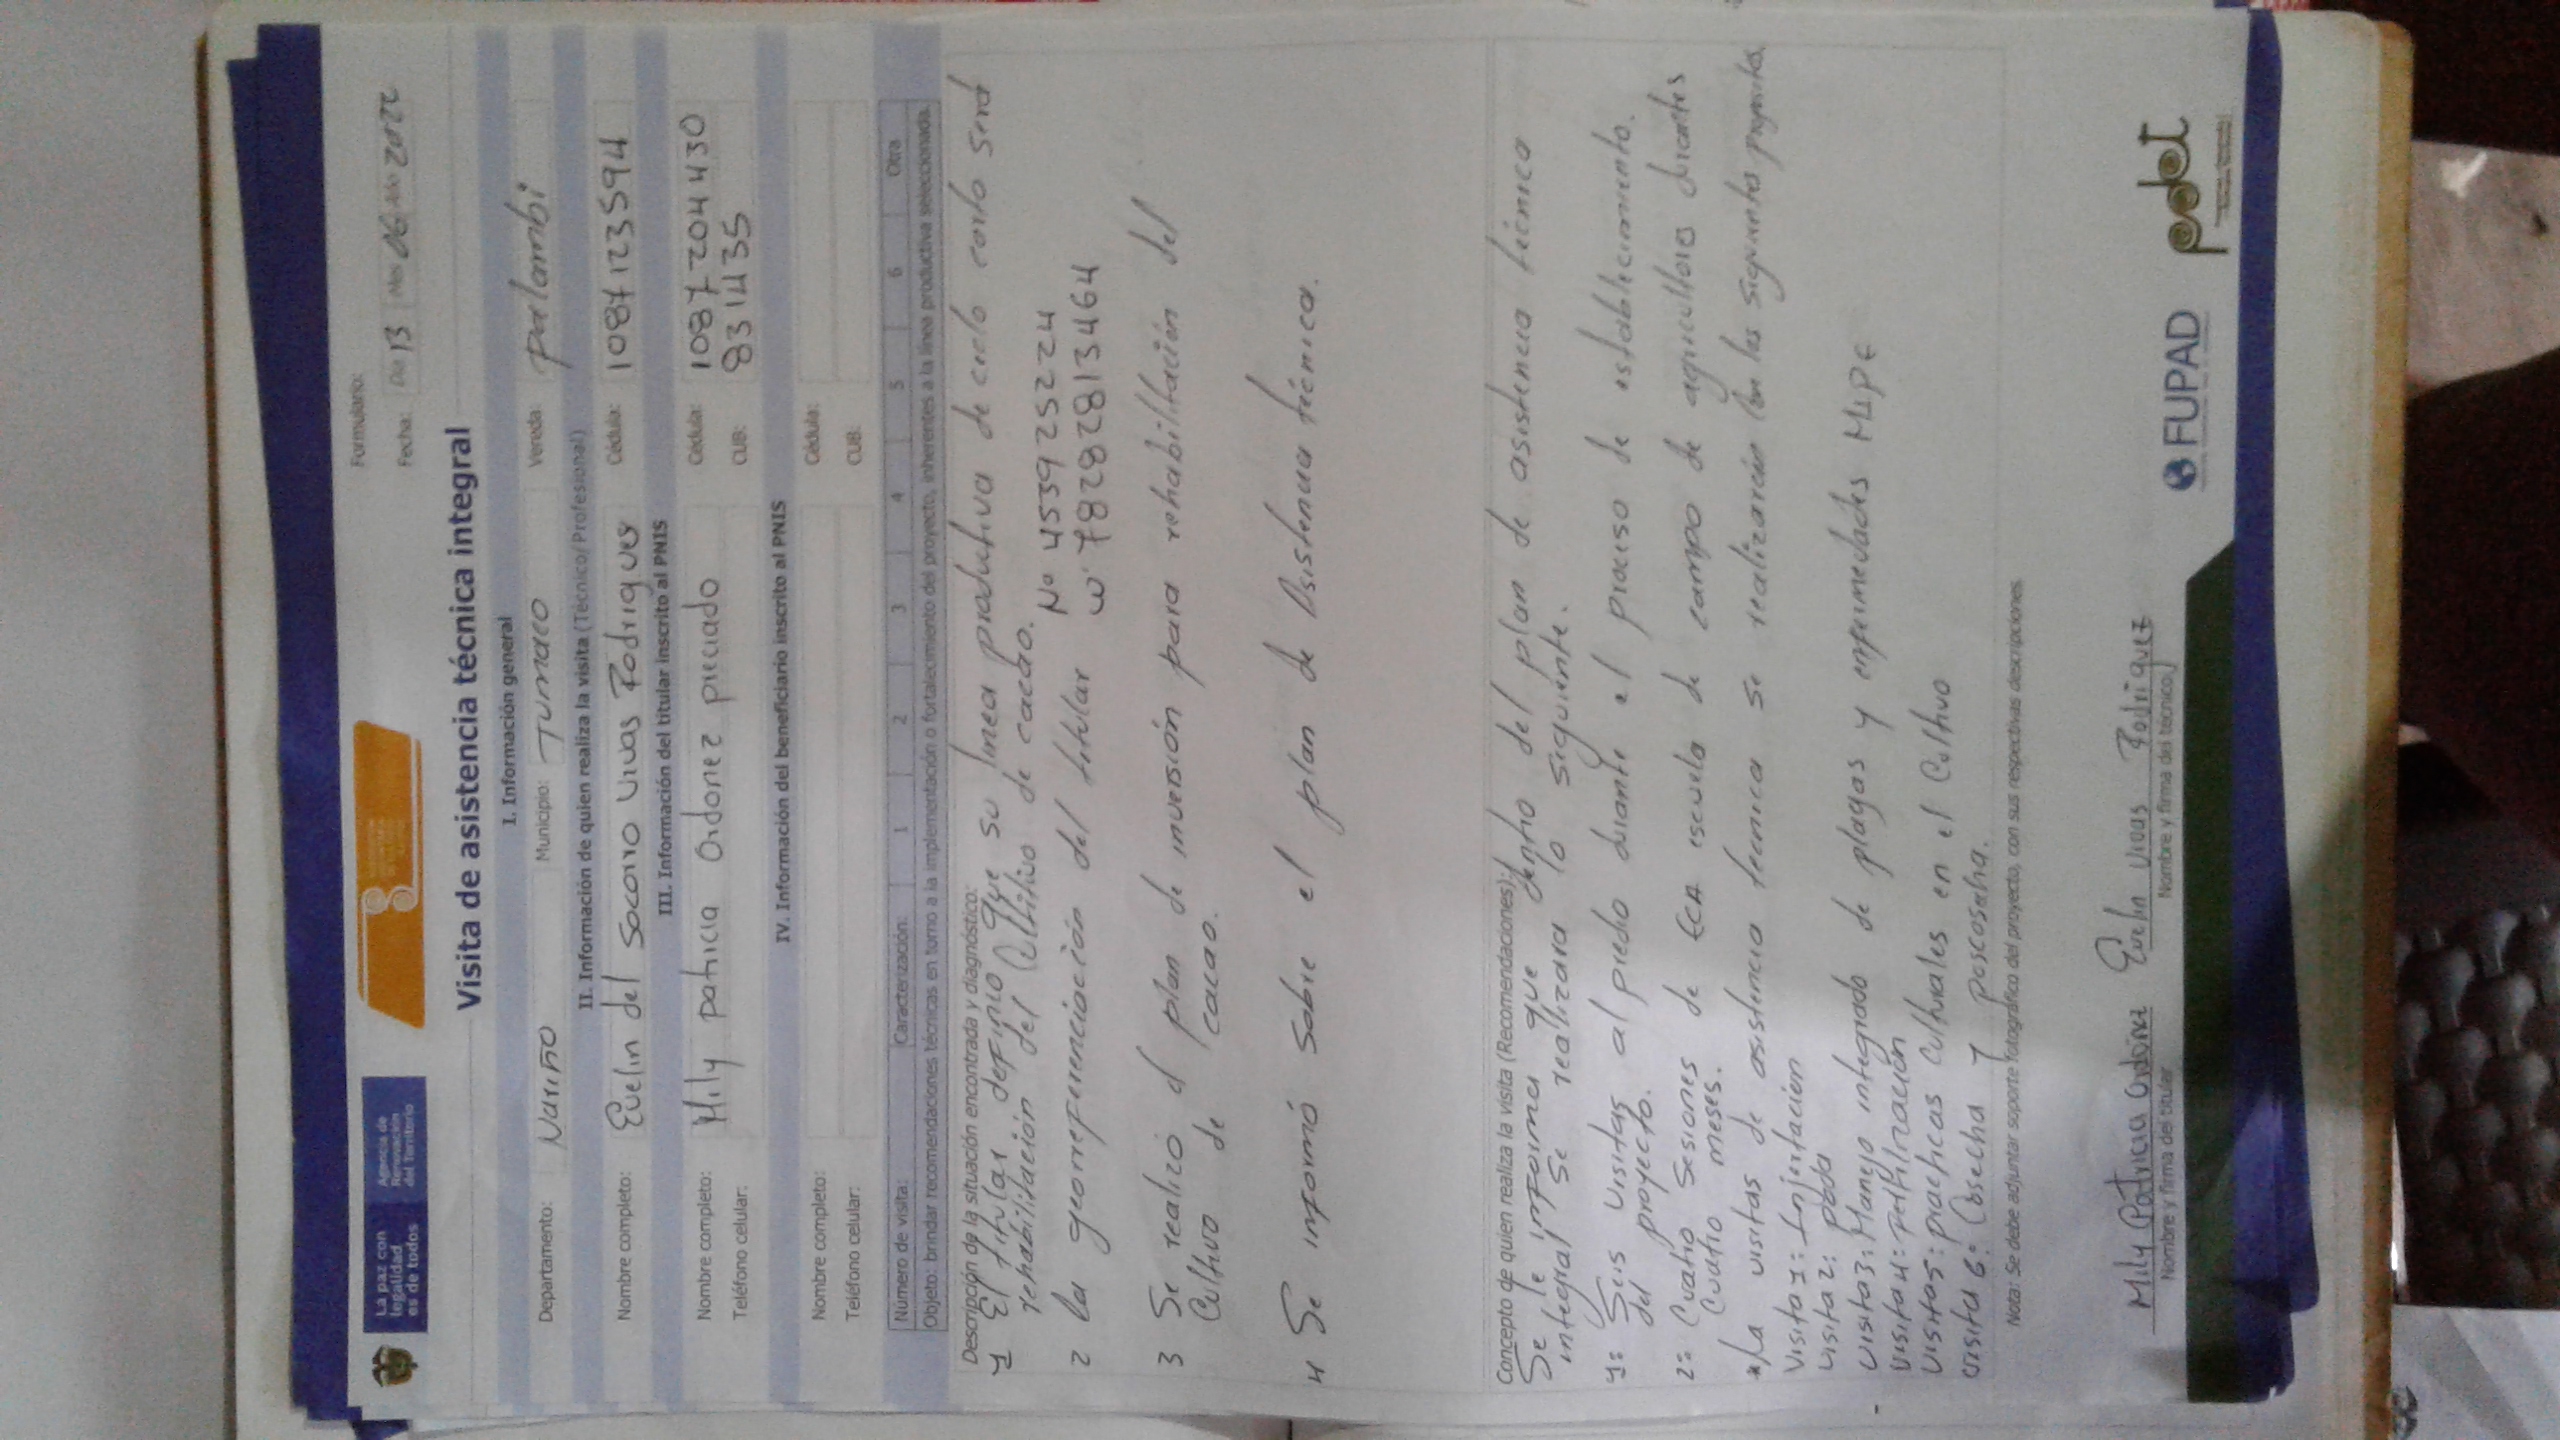 La paz con
legalidad
es de todos
Agencia de
Renovación
del Territorio
Formulario:
Fecha: Día 13 Mes 06 Año 2022
Visita de asistencia técnica integral
I. Información general
Departamento: Nariño Municipio: Tumaco Vereda: palambi
II. Información de quien realiza la visita (Técnico/Profesional)
Nombre completo: Evelin del Socorro vivas Rodrigues Cédula: 1087123594
III. Información del titular inscrito al PNIS
Nombre completo: Mily patricia Ordoñez preciado Cédula: 1087204430
Teléfono celular: CUB: 831435
IV. Información del beneficiario inscrito al PNIS
Nombre completo: Cédula:
Teléfono celular: CUB:
Número de visita: Caracterización: 1 2 3 4 5 6 Otra
Objeto: brindar recomendaciones técnicas en torno a la implementación o fortalecimiento del proyecto, inherentes a la línea productiva seleccionada.
Descripción de la situación encontrada y diagnóstico:
1 El titular definio que su linea productiva de ciclo corto será
rehabilitación del Cultivo de cacao.
2 la georreferenciación del titular Nº 453925224
W. 78282813464
3 Se realizo el plan de inversión para rehabilitación del
Cultivo de cacao.
4 Se informó sobre el plan de Asistencia técnica.
Concepto de quien realiza la visita (Recomendaciones):
Se le informa que dentro del plan de asistencia técnica
integral se realizara lo siguiente.
1: Seis visitas al predio durante el proceso de establecimiento.
del proyecto.
2: Cuatro Sesiones de ECA escuela de campo de agricultores durantes
Cuatro meses.
*La visitas de asistencia tecnica se realizarán con los siguientes propositos.
Visita 1: Injertación
visita 2: poda
visita 3: Manejo integrado de plagas y enfermedades MIPE
visita 4: fertilización
Visita 5: practicas culturales en el Cultivo
visita 6: Cosecha y poscosecha.
Nota: Se debe adjuntar soporte fotográfico del proyecto, con sus respectivas descripciones.
Mily Patricia Ordoñez Evelin vivas Rodriguez
Nombre y firma del titular Nombre y firma del técnico
FUPAD
pdet